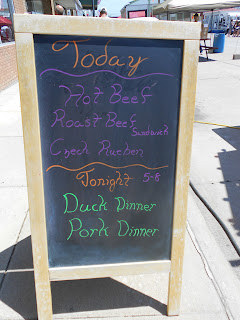 Today
Hot Beef
Roast Beef Sandwich
Czech Rueben
Tonight 5-8
Duck Dinner
Pork Dinner